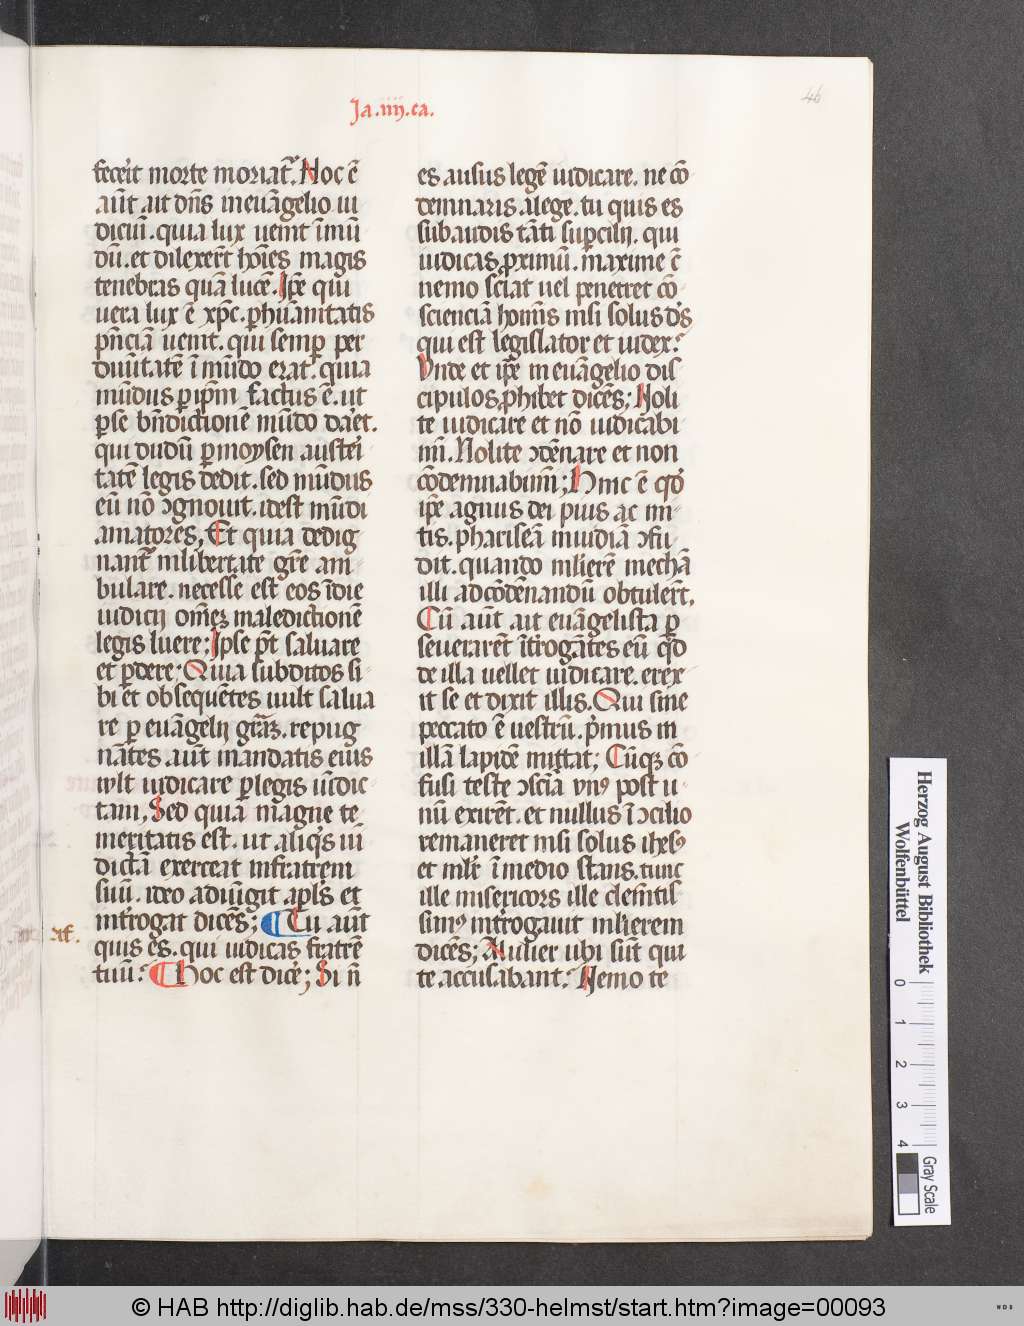 46
Ja.iiij.ca.
fecerit morte moriat᷑. Hoc ē
aūt ait dn̄s in euāgelio iu
diciū. quia lux uenit ī mū
dū. et dilexer̄t hoīes magis
tenebras quā lucē. Ip̄e qui
uera lux ē xp̄c. ꝑ hūanitatis
p̄n̄ciā uenit. qui semꝑ per
diuītatē ī mūdo erat. quia
mūdus ꝑ ip̄m factus ē. ut
ꝑ se bn̄dictionē mūdo daret.
qui dudū ꝑ moysen austeri
tatē legis dedit. sed mūdus
eū nō ꝯgnouit. idest mūdi
amatores. Et quia dedig
nant᷑ in libertate gr̄e am
bulare. necesse est eos īdie
iudicij om̄eꝫ maledictionē
legis luere; Ipse p̄t saluare
et ꝑdere. Quia subditos si
bi et obsequētes uult salua
re ꝑ euāgelij gr̄aꝫ. repug
nātes aūt mandatis eius
uult iudicare ꝑ legis uīdic
tam, Sed quia magne te
meritatis est. ut aliqis uī
dictā exerceat in fratrem
suū. ideo adiūgit apl̄s et
int̄rogat dicēs; Tu aūt
quis es. qui iudicas fratrē
tuū. Hoc est dicere; Si n̄
es ausus legē iudicare. ne cō
demnaris a lege. tu quis es
sub audis tāti suꝑcilij. qui
iudicas ꝓximū. maxime cū
nemo sciat uel penetret cō
scienciā hominis nisi solus ds̄
qui est legislator et iudex.
Unde et ip̄e in euāgelio dis
cipulos ꝓhibet dicēs; Noli
te iudicare et nō iudicabi
mī. Nolite ꝯdēnare et non
cōdemnabimī; Hinc ē qd̄
ip̄e agnus dei pius ac mi
tis. phariseā inuidiā ꝯfu
dit. quando mlierē mechā
illi ad cōdēnandū obtuler̄t.
Cū aūt ait euāgelista ꝑ
seuerarēt īt̄rogātes eū qd̄
de illa uellet iudicare. erex
it se et dixit illis. Qui sine
peccato ē uestrū. p̄mus in
illā lapidē mittat; Cūqꝫ cō
fusi teste ꝯscīa unꝰ post u
nū exirēt. et nullus ī ꝯcilio
remaneret nisi solus ihesꝰ
et ml̄r ī medio stans. tunc
ille misericors ille clemētis
simꝰ int̄rogauit mlierem
dicēs; Mulier ubi sūt qui
te accusabant. Nemo te
Herzog August Bibliothek
Wolfenbüttel
0
1
2
3
4
Gray Scale
© HAB http://diglib.hab.de/mss/330-helmst/start.htm?image=00093